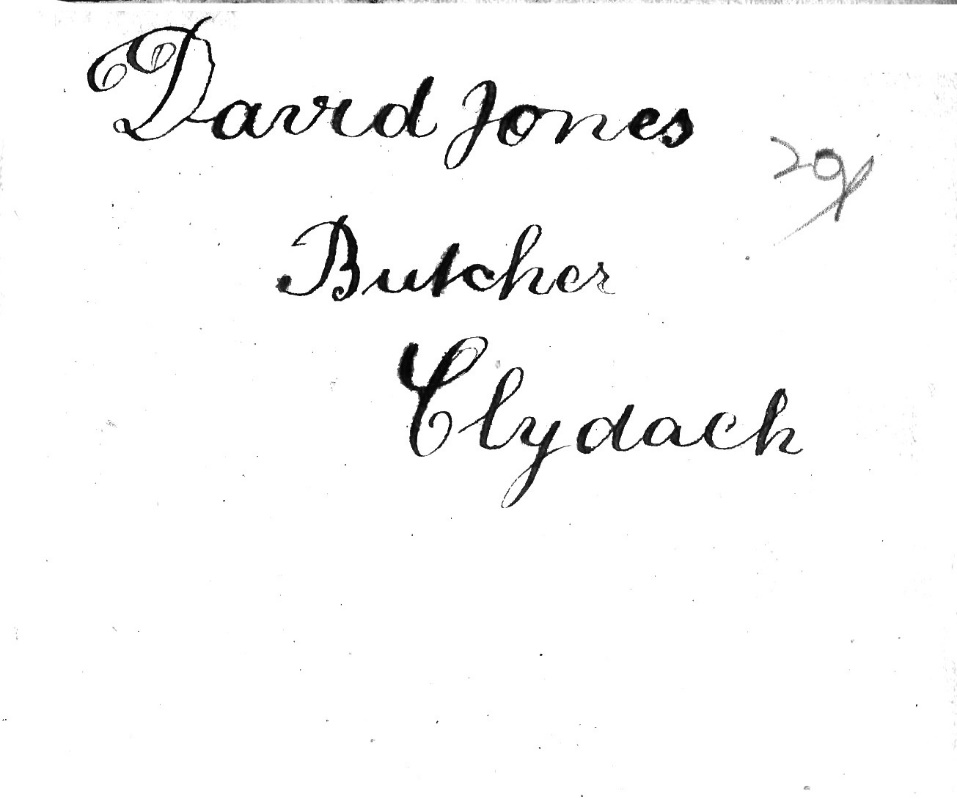 David Jones
Butcher
Clydach